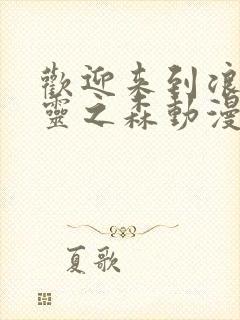 歡迎来到浪
靈之森動漫
夏歌